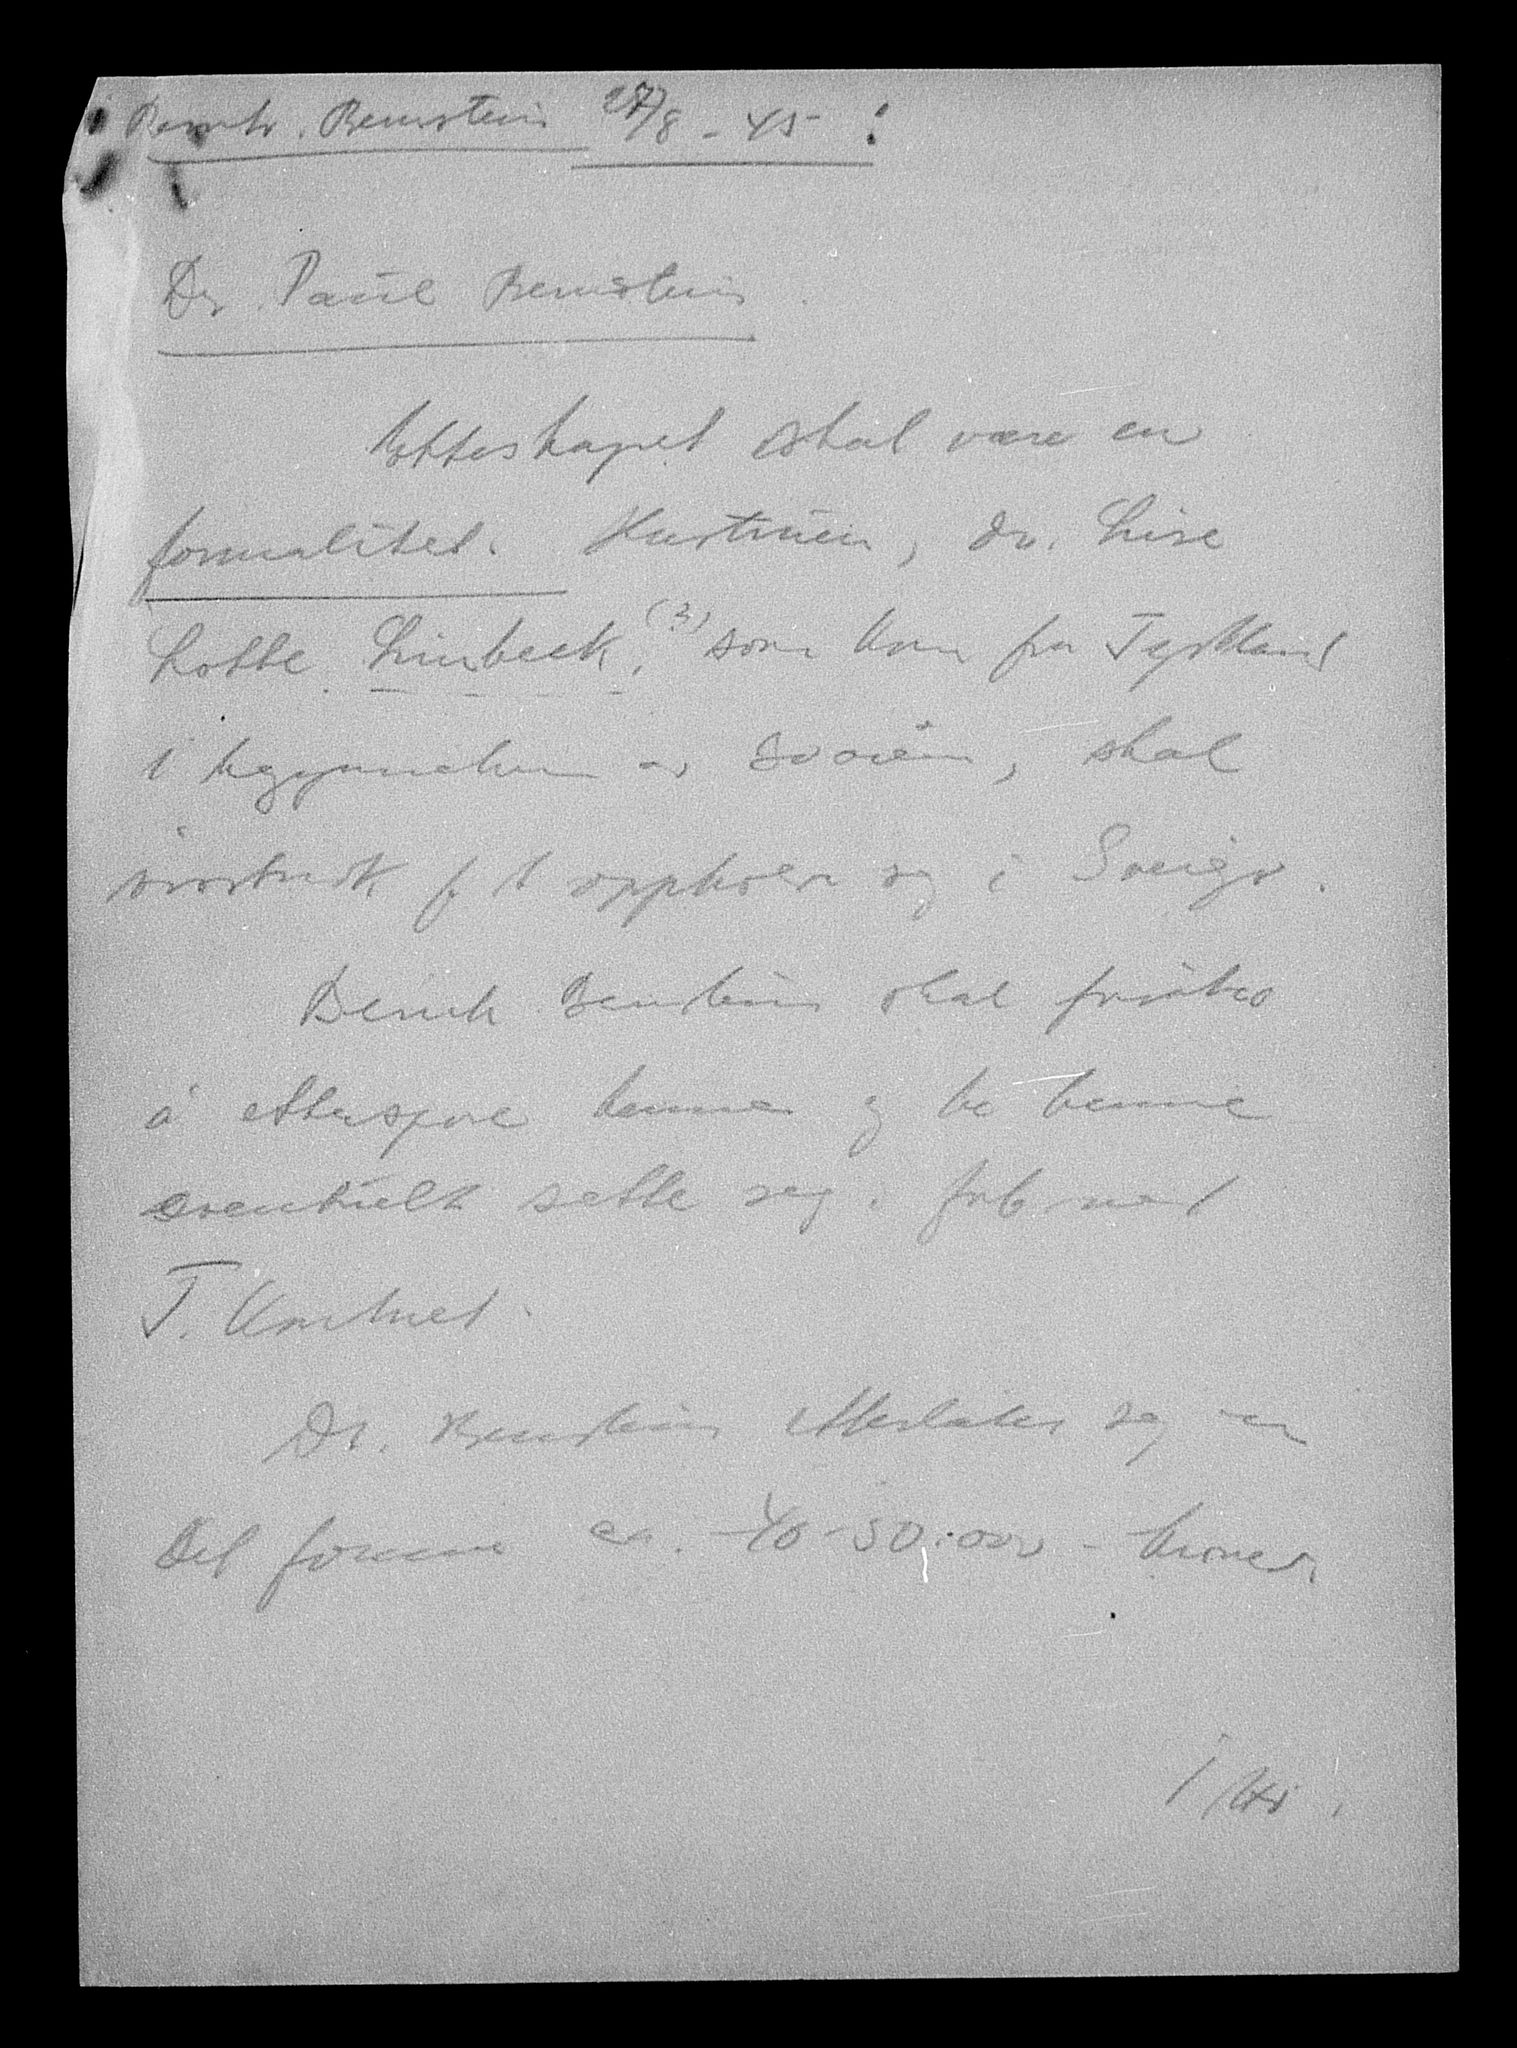 Bernh. Bernstein 27/8 - 45 :
Dr. Paul Bernstein.
Ekteskapet skal være en
formalitet. Hustruen, dr. Lise
Lotte Linbeck, (?) som kom fra Tyskland
i begynnelsen av 30 årene, skal
opphold seg i Sverige.
Bernh. Bernstein skal forsøke
å etterspore henne og be henne
eventuelt sette seg i forb. med
T. Kontoret.
Dr. Bernstein etterlater seg en
del formue ca. 40-50.000 - kroner